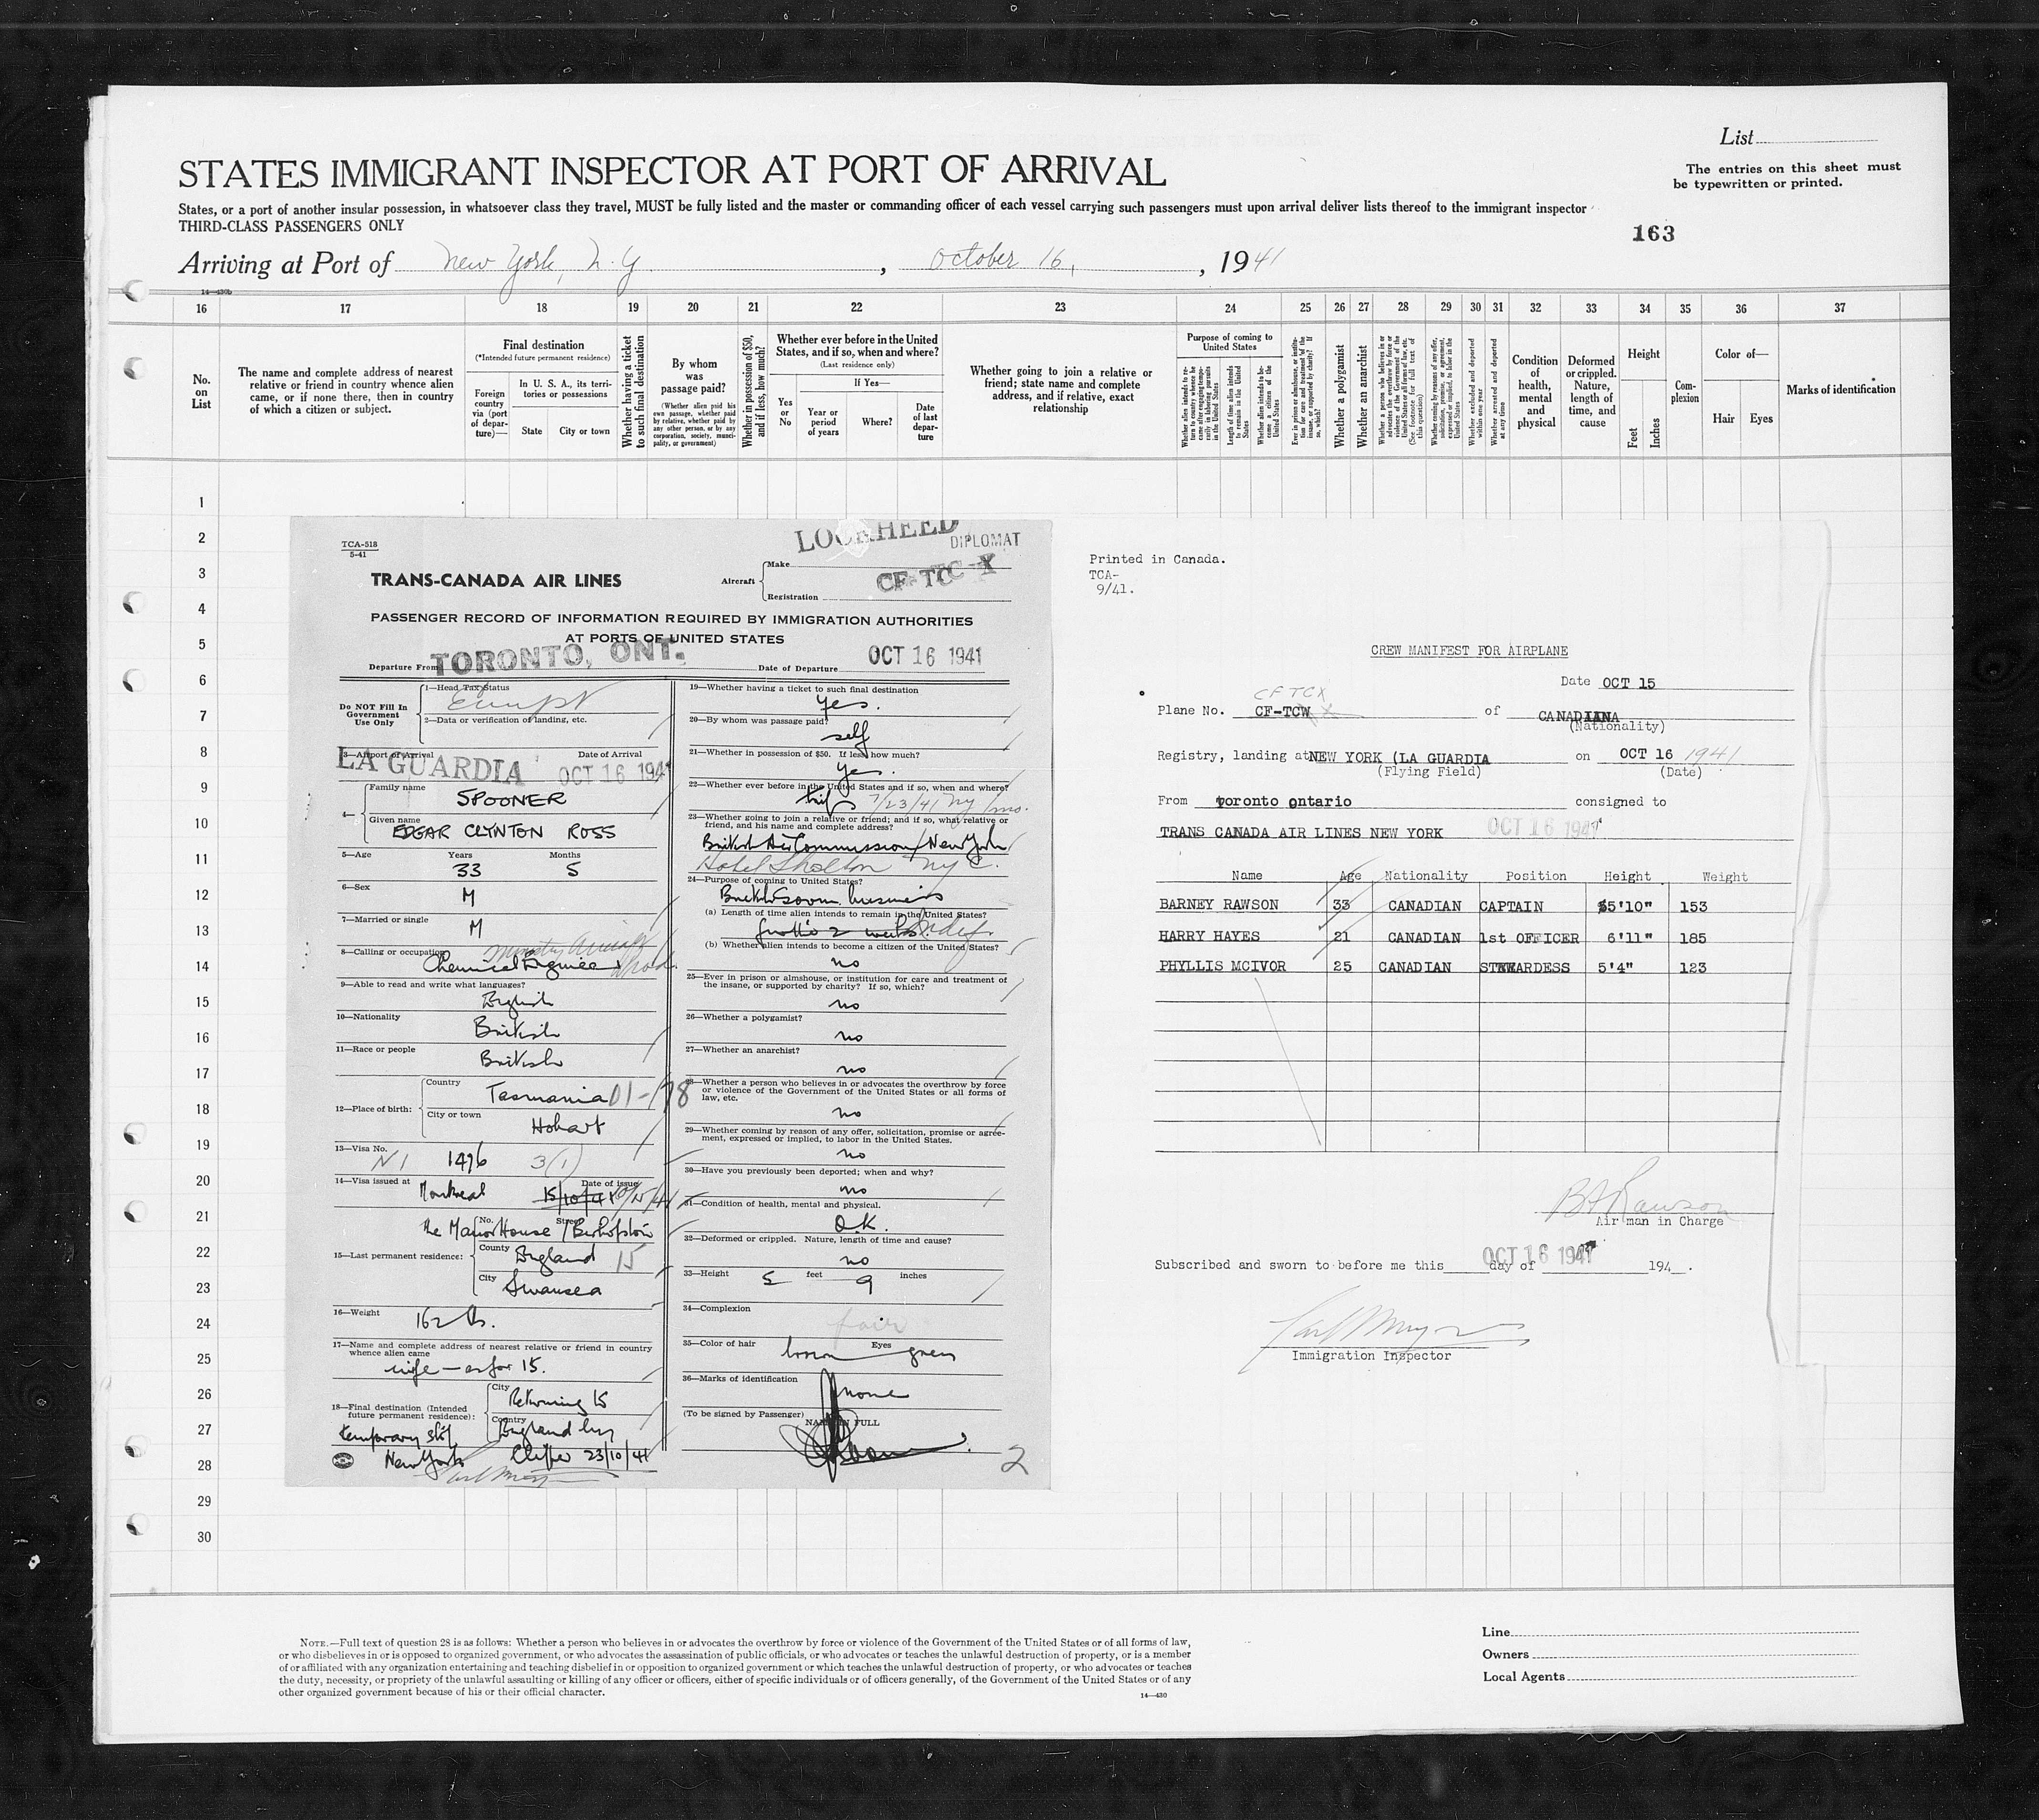 List
The entries on this sheet must
be typewritten or printed.
STATES IMMIGRANT INSPECTOR AT PORT OF ARRIVAL
States, or a port of another insular possession, in whatsoever class they travel, MUST be fully listed and the master or commanding officer of each vessel carrying such passengers must upon arrival deliver lists thereof to the immigrant inspector
THIRD-CLASS PASSENGERS ONLY
163
Arriving at Port of New York, N.Y. , October 16, , 1941
14—430b
16 17 18 19 20 21 22 23 24 25 26 27 28 29 30 31 32 33 34 35 36 37
No. on List
The name and complete address of nearest relative or friend in country whence alien came, or if none there, then in country of which a citizen or subject.
Final destination
(*Intended future permanent residence)
Foreign country via (port of departure)—
In U. S. A., its territories or possessions
State
City or town
Whether having a ticket to such final destination
By whom was passage paid?
(Whether alien paid his own passage, whether paid by relative, whether paid by any other person, or by any corporation, society, municipality, or government)
Whether in possession of $50, and if less, how much?
Whether ever before in the United States, and if so, when and where?
(Last residence only)
If Yes—
Yes or No
Year or period of years
Where?
Date of last departure
Whether going to join a relative or friend; state name and complete address, and if relative, exact relationship
Purpose of coming to United States
Whether alien intends to return to country whence he came after engaging temporarily in laboring pursuits in the United States
Length of time alien intends to remain in the United States
Whether alien intends to become a citizen of the United States
Ever in prison or almshouse, or institution for care and treatment of the insane, or supported by charity? If so, which?
Whether a polygamist
Whether an anarchist
Whether excluded and deported within one year
Whether arrested and deported at any time
Condition of health, mental and physical
Deformed or crippled. Nature, length of time, and cause
Height
Feet
Inches
Complexion
Color of—
Hair
Eyes
Marks of identification
1
2
3
4
5
6
7
8
9
10
11
12
13
14
15
16
17
18
19
20
21
22
23
24
25
26
27
28
29
30
TCA-518
5-41
LOCKHEED
DIPLOMAT
TRANS-CANADA AIR LINES
Aircraft
Make
CF-TC X
Registration
PASSENGER RECORD OF INFORMATION REQUIRED BY IMMIGRATION AUTHORITIES
AT PORTS OF UNITED STATES
Departure From TORONTO, ONT. Date of Departure OCT 16 1941
Do NOT Fill In
Government
Use Only
1—Head Tax Status
Exempt
2—Data or verification of landing, etc.
3—Airport of Arrival Date of Arrival
LA GUARDIA OCT 16 1941
4— Family name
SPOONER
Given name
EDGAR CLYNTON ROSS
5—Age Years Months
33 5
6—Sex
M
7—Married or single
M
8—Calling or occupation
Chemical Engineer
9—Able to read and write what languages?
English
10—Nationality
British
11—Race or people
British
12—Place of birth:
Country
Tasmania 01-178
City or town
Hobart
13—Visa No.
N1 1496 3(1)
14—Visa issued at Date of issue
Montreal 15/10/41 10/15/41
No. Street
The Manor House / Bishopston
15—Last permanent residence:
County England 15
City Swansea
16—Weight
162 lb.
17—Name and complete address of nearest relative or friend in country
whence alien came
wife — as for 15.
18—Final destination (Intended
future permanent residence):
City Returning 15
Country England by
temporary stop
New York Clipper 23/10/41
19—Whether having a ticket to such final destination
yes.
20—By whom was passage paid?
self
21—Whether in possession of $50. If less, how much?
yes.
22—Whether ever before in the United States and if so, when and where?
7/23/41 NY 1 mo.
23—Whether going to join a relative or friend; and if so, what relative or
friend, and his name and complete address?
British Air Commission / New York
Hotel Shelton NYC.
24—Purpose of coming to United States?
British Govm. business
(a) Length of time alien intends to remain in the United States?
2 weeks. Indef.
(b) Whether alien intends to become a citizen of the United States?
no
25—Ever in prison or almshouse, or institution for care and treatment of
the insane, or supported by charity? If so, which?
no
26—Whether a polygamist?
no
27—Whether an anarchist?
no
28—Whether a person who believes in or advocates the overthrow by force
or violence of the Government of the United States or all forms of
law, etc.
no
29—Whether coming by reason of any offer, solicitation, promise or agree-
ment, expressed or implied, to labor in the United States.
no
30—Have you previously been deported; when and why?
no
31—Condition of health, mental and physical.
O.K.
32—Deformed or crippled. Nature, length of time and cause?
no
33—Height 5 feet 9 inches
34—Complexion
fair
35—Color of hair Eyes
brown green
36—Marks of identification
none
(To be signed by Passenger)
NAME IN FULL
2
Printed in Canada.
TCA-
9/41.
CREW MANIFEST FOR AIRPLANE
Date OCT 15
CF TCX
Plane No. CF-TCW of CANADIANA
(Nationality)
Registry, landing at NEW YORK (LA GUARDIA on OCT 16 1941
(Flying Field) (Date)
From toronto ontario consigned to
TRANS CANADA AIR LINES NEW YORK OCT 16 1941
Name Age Nationality Position Height Weight
BARNEY RAWSON 33 CANADIAN CAPTAIN 5'10" 153
HARRY HAYES 21 CANADIAN 1st OFFICER 6'11" 185
PHYLLIS MCIVOR 25 CANADIAN STEWARDESS 5'4" 123
B A Rawson
Air man in Charge
OCT 16 1941
Subscribed and sworn to before me this day of 194 .
Immigration Inspector
NOTE.—Full text of question 28 is as follows: Whether a person who believes in or advocates the overthrow by force or violence of the Government of the United States or of all forms of law,
or who disbelieves in or is opposed to organized government, or who advocates the assassination of public officials, or who advocates or teaches the unlawful destruction of property, or is a member
of or affiliated with any organization entertaining and teaching disbelief in or opposition to organized government or which teaches the unlawful destruction of property, or who advocates or teaches
the duty, necessity, or propriety of the unlawful assaulting or killing of any officer or officers, either of specific individuals or of officers generally, of the Government of the United States or of any
other organized government because of his or their official character.
14—430
Line
Owners
Local Agents